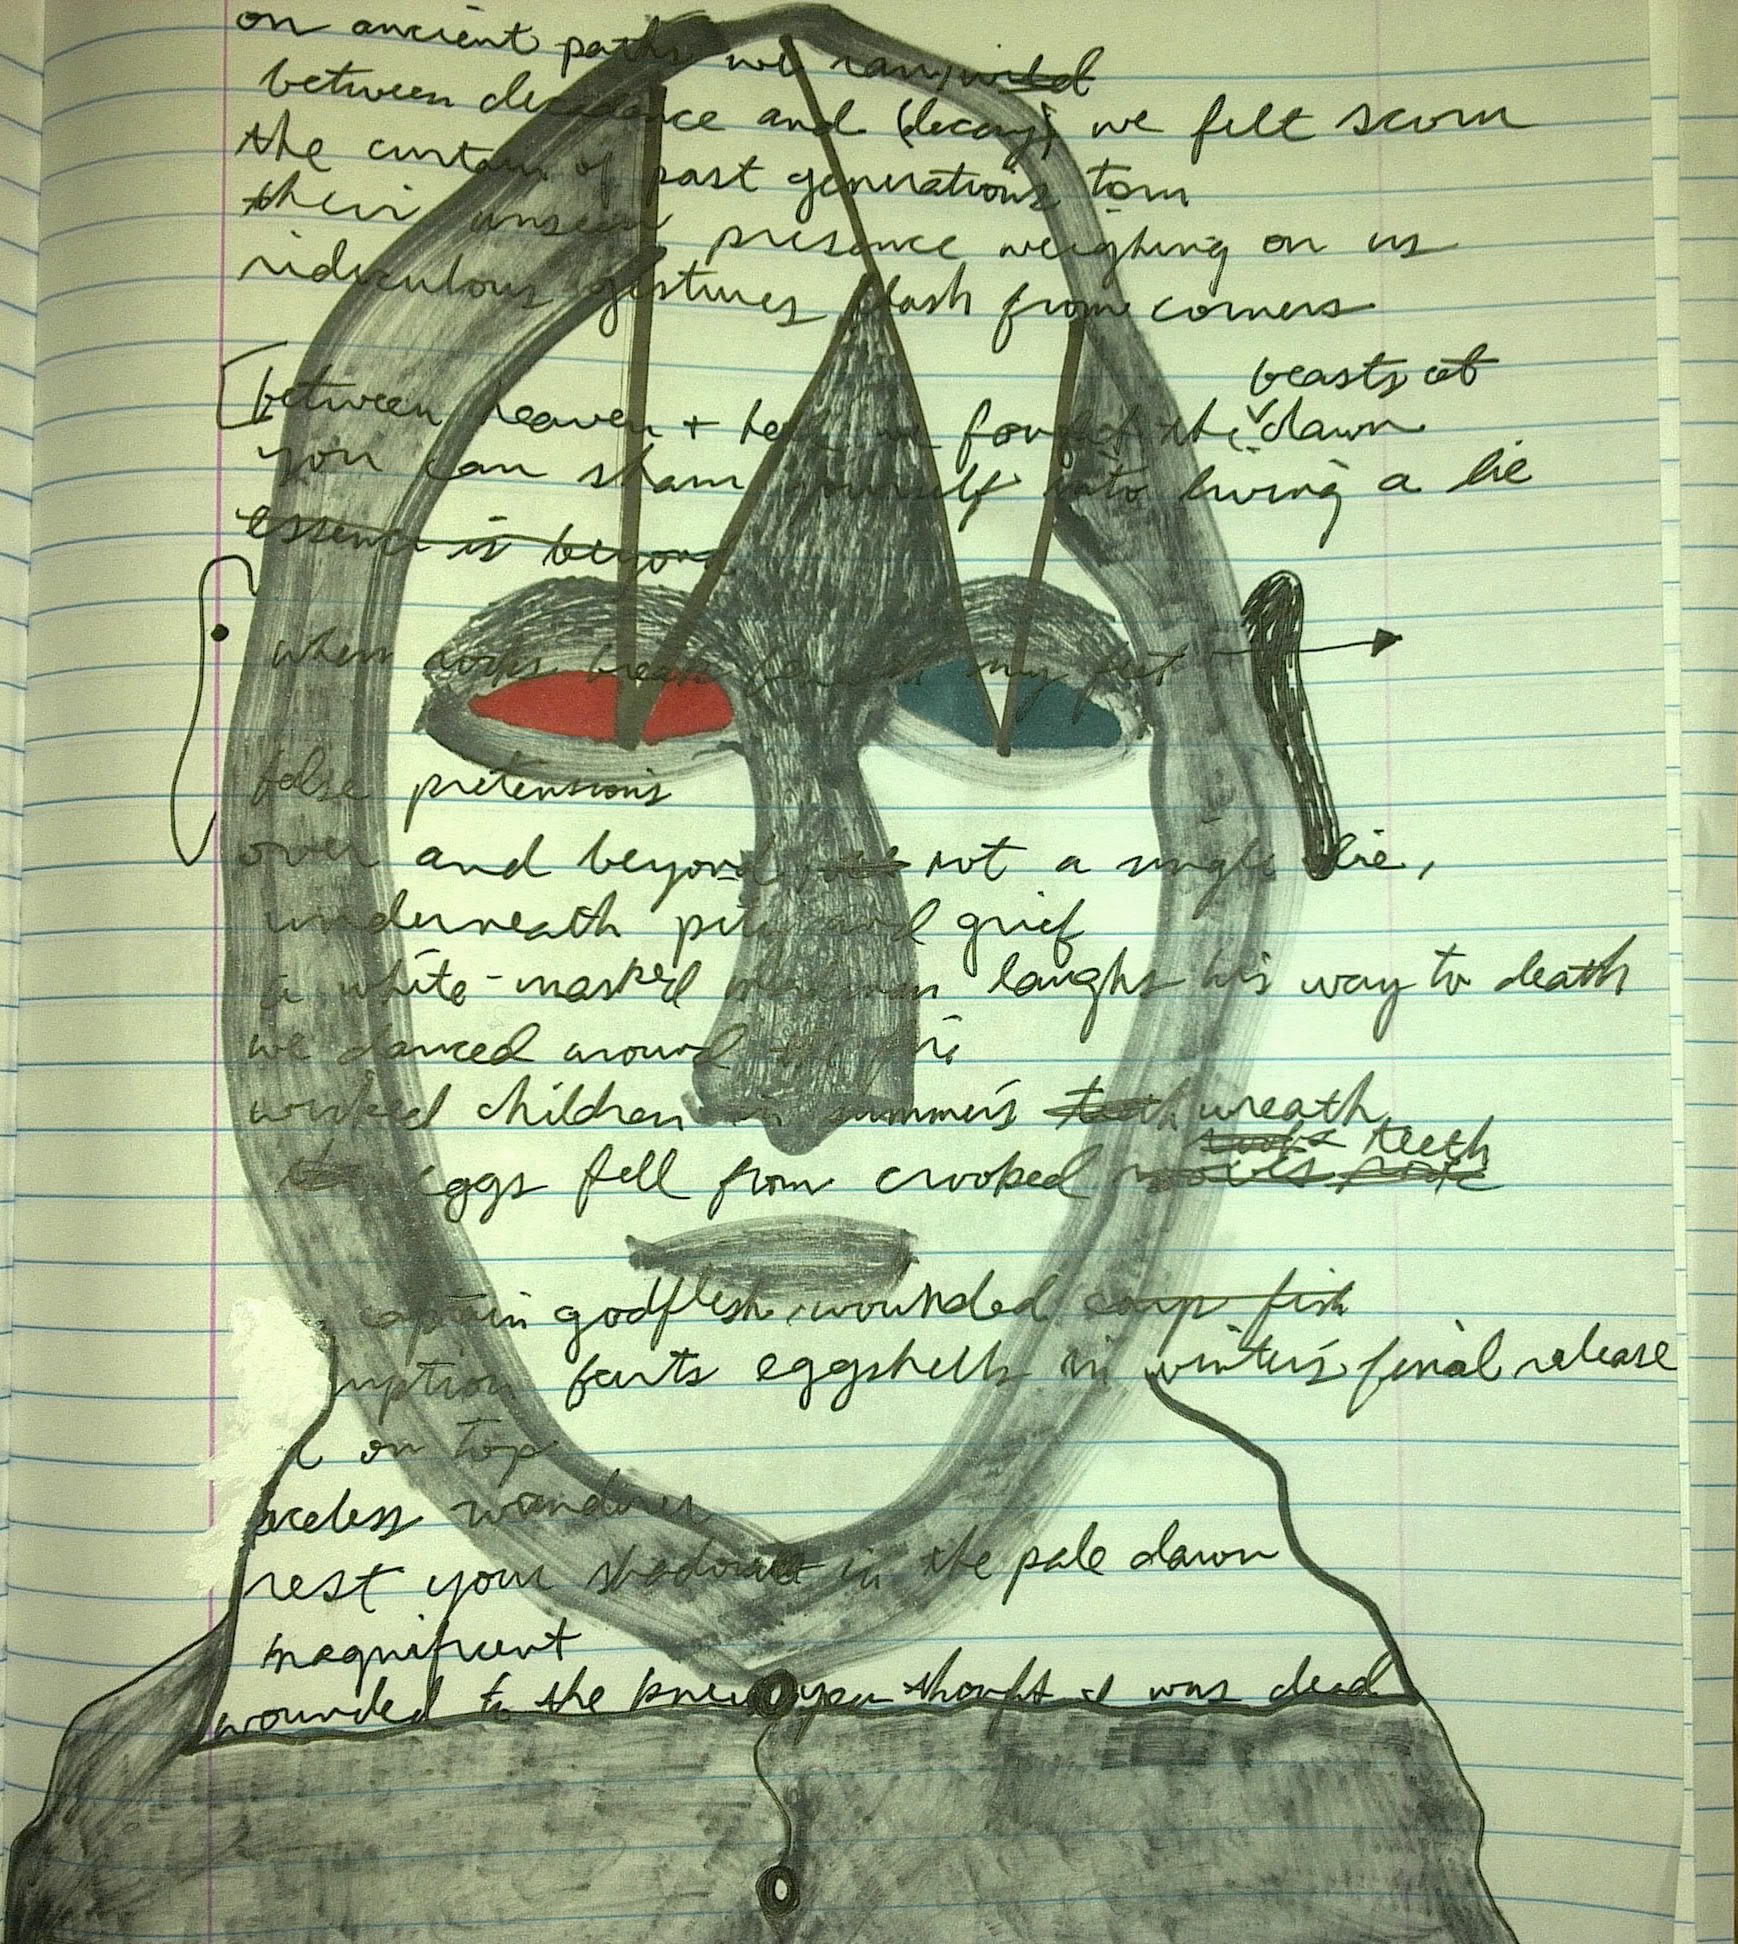 on ancient paths we ran wild
between decadence and (decay) we felt scorn
the curtain of past generations torn
their unseen presence weighing on us
ridiculous gestures flash from corners
beasts at
between heaven + hell we fought the dawn
you can sham yourself into living a lie
essence is beyond
when waves break beneath my feet
false pretensions
over and beyond not a single lie,
underneath pity and grief
a white-masked madman laughs his way to death
we danced around the fire
wicked children in summer's teeth wreath
teeth
eggs fell from crooked
captain godflesh wounded carp fish
farts eggshells in winter's final release
on top
wanderer
rest your shadow in the pale dawn
magnificent
wounded to the knee you thought I was dead